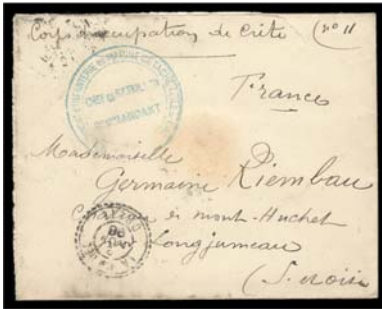 Corps d'occupation de Crète (no 11
France
CHEF DE BATAILLON
COMMANDANT
Mademoiselle
Germaine Riembau
de mont-Huchet
Longjumeau
(S. et Oise
CRETE